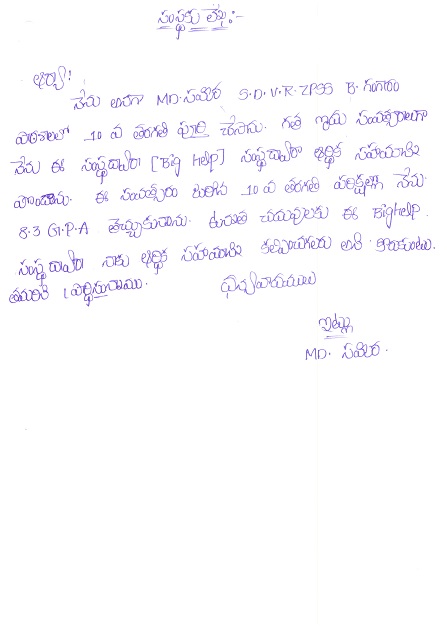 సంస్థకు లేఖ :-
ఆర్యా!
నేను అనగా MD. సమీర S.D.V.R. ZPSS B. గంగారం
పాఠశాలలో 10 వ తరగతి పూర్తి చేసాను. గత సంవత్సరాలుగా
నేను ఈ సంస్థ ద్వారా [Big Help] సంస్థ ద్వారా ఆర్థిక సహాయాన్ని
పొందాను. ఈ సంవత్సరం జరిగిన 10 వ తరగతి పరీక్షల్లో నేను
8.3 G.P.A తెచ్చుకున్నాను. ఉన్నత చదువులకు ఈ Big Help.
సంస్థ ద్వారా నాకు ఆర్థిక సహాయాన్ని కల్పించగలరు అని కోరుకుంటూ.
తమరిని
ధన్యవాదములు
ఇట్లు
MD. సమీర.